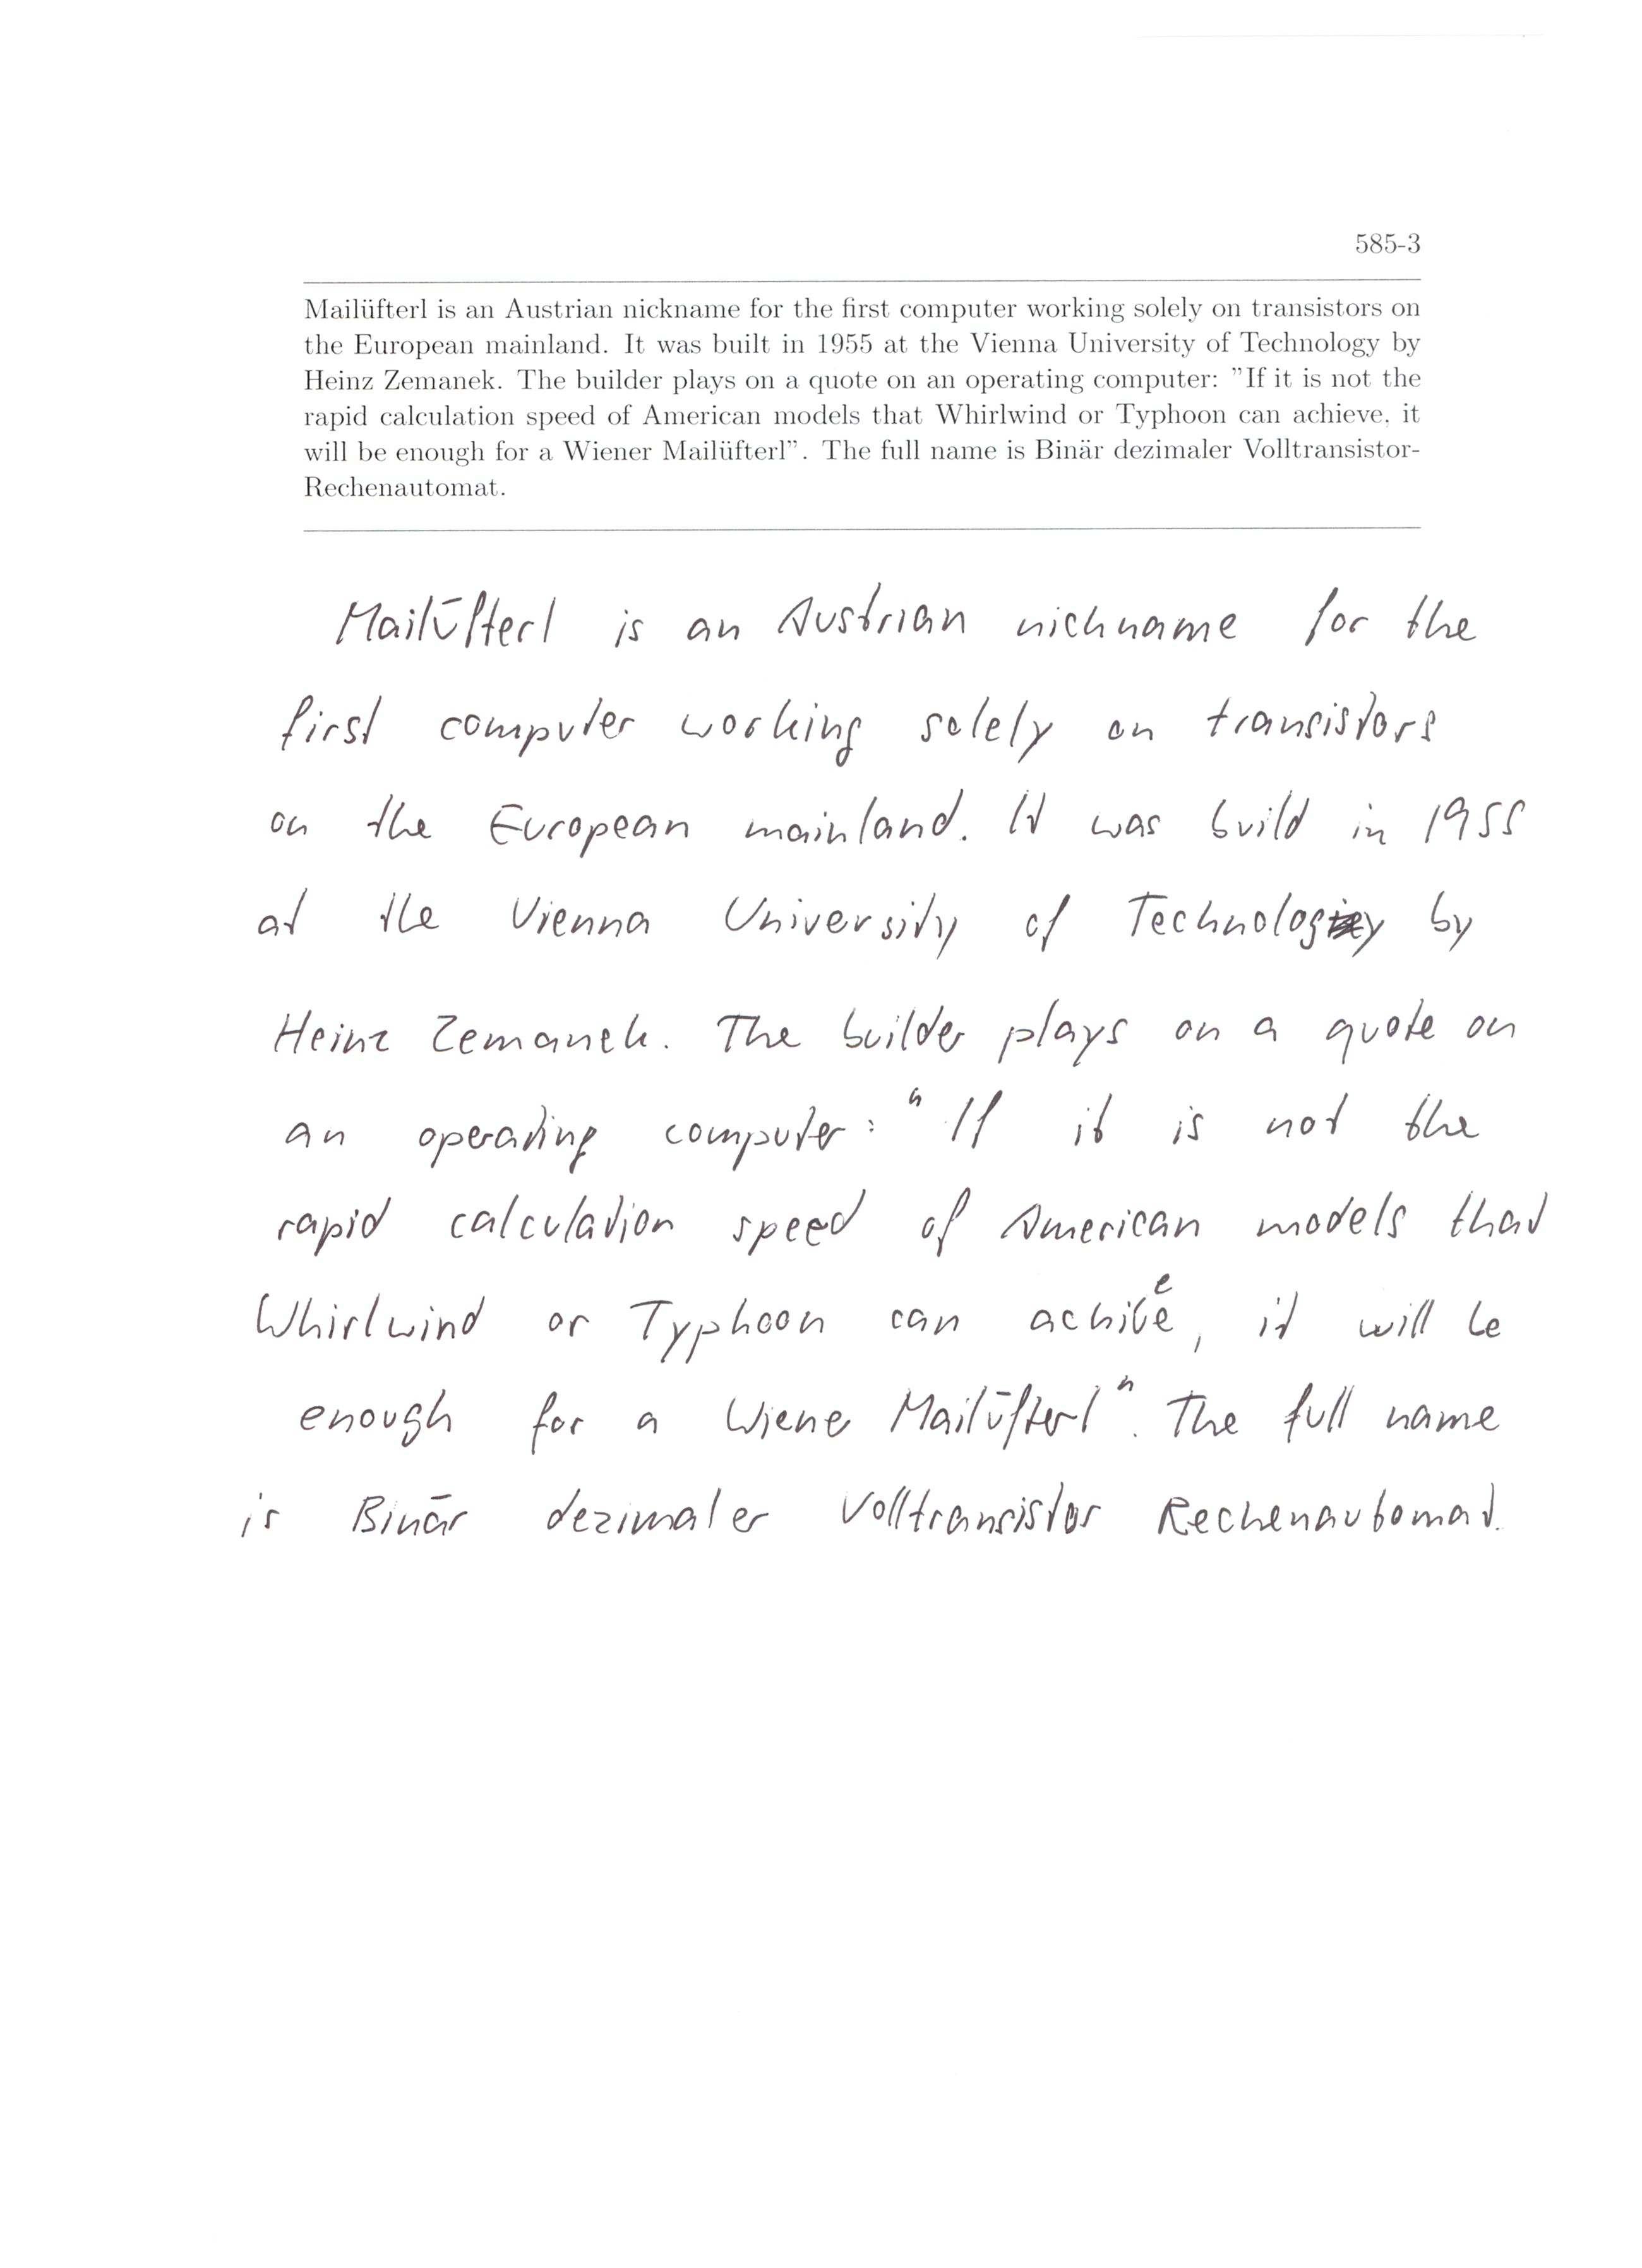 585-3
Mailüfterl is an Austrian nickname for the first computer working solely on transistors on
the European mainland. It was built in 1955 at the Vienna University of Technology by
Heinz Zemanek. The builder plays on a quote on an operating computer: "If it is not the
rapid calculation speed of American models that Whirlwind or Typhoon can achieve, it
will be enough for a Wiener Mailüfterl". The full name is Binär dezimaler Volltransistor-
Rechenautomat.
Mailüfterl is an Austrian nickname for the
first computer working solely on transistors
on the European mainland. It was build in 1955
at the Vienna University of Technology by
Heinz Zemanek. The builder plays on a quote on
an operating computer: "If it is not the
rapid calculation speed of American models that
Whirlwind or Typhoon can achieve, it will be
enough for a Wiener Mailüfterl". The full name
is Binär dezimaler Volltransistor Rechenautomat.